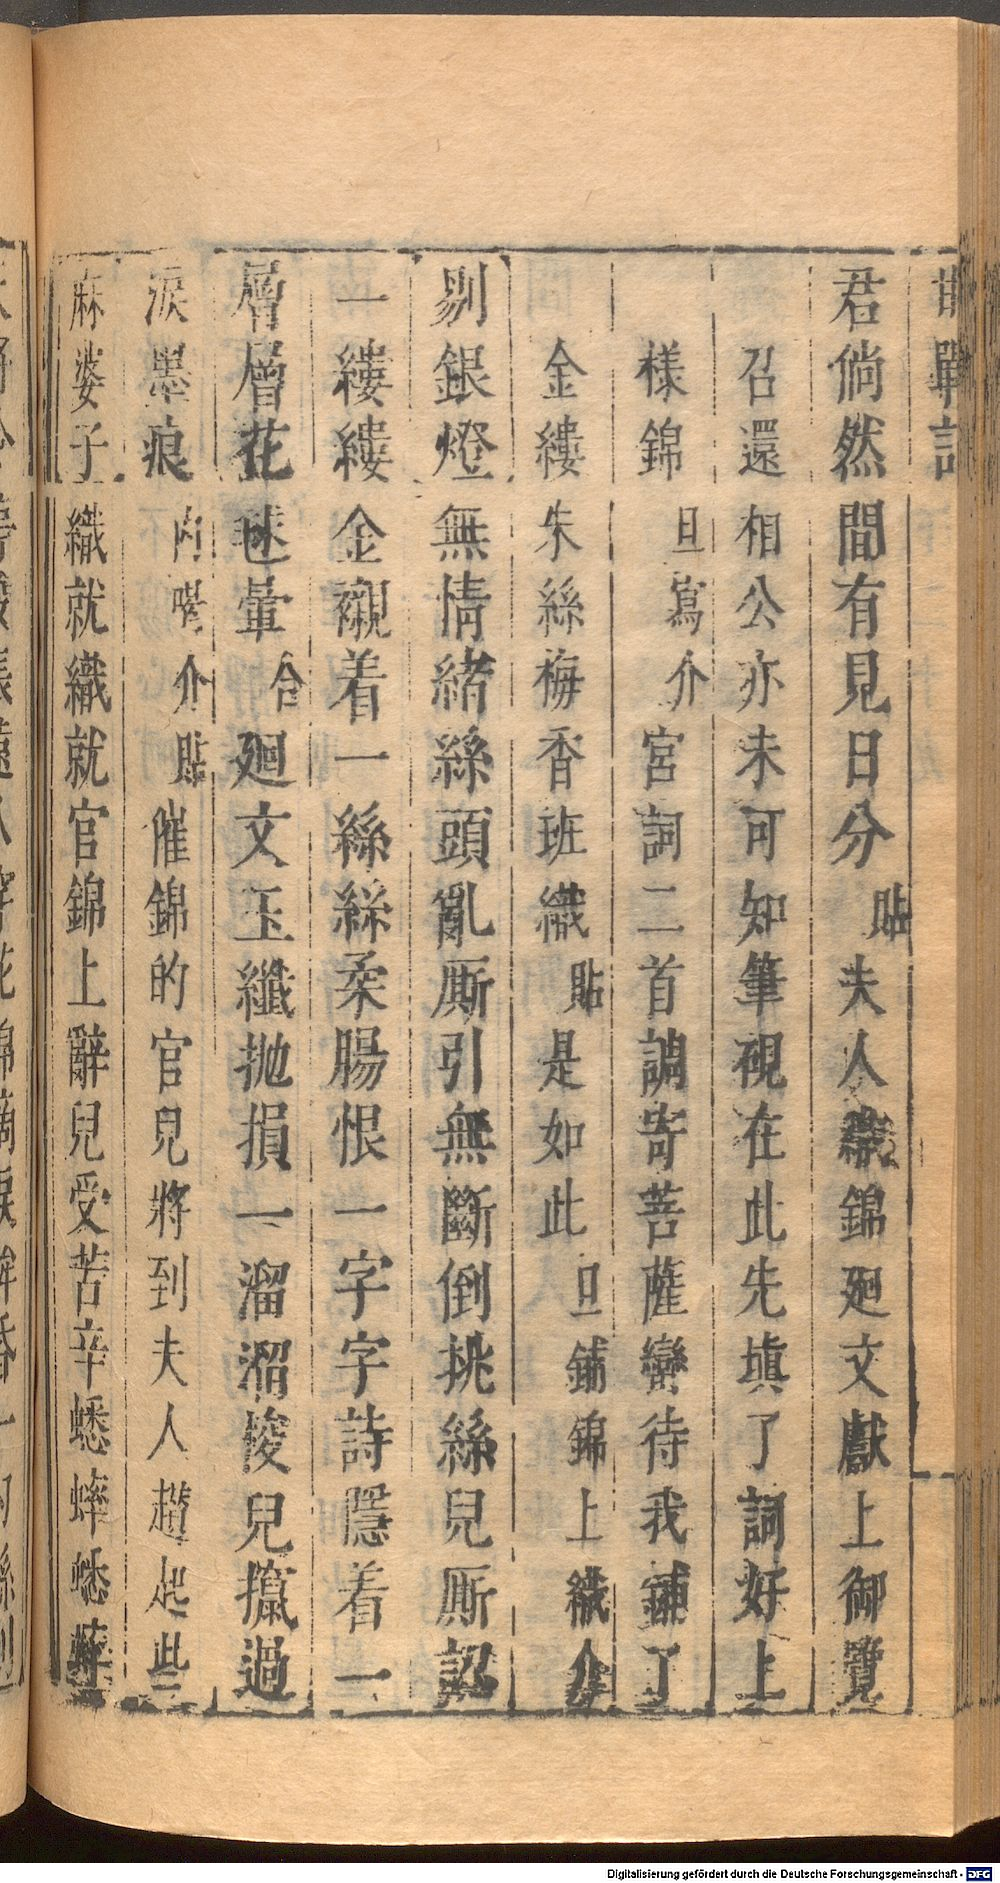 邯鄲記
君倘然間有見日分貼夫人織錦廻文獻上御覽
召還相公亦未可知筆硯在此先填了詞好上
樣錦旦寫介宮詞二首調寄菩薩蠻待我鋪了
金縷朱絲梅香班織貼是如此旦鋪錦上織介
剔銀燈無情緒絲頭亂厮引無斷倒挑絲兒厮認
一縷縷金襯着一絲絲柔腸恨一字字詩隱着一
層層花毬暈合廻文玉纖抛損一溜溜梭兒攛過
淚墨痕內喝介貼催錦的官兒將到夫人趲起些
麻婆子織就織就官錦上辭兒受苦辛蟋蟀蟋蟀
Digitalisierung gefördert durch die Deutsche Forschungsgemeinschaft - DFG